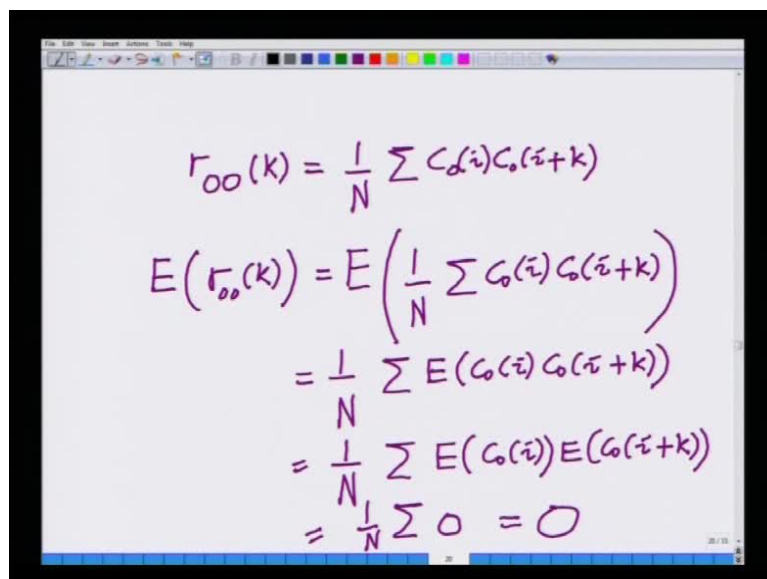 File Edit View Insert Actions Tools Help
r₀₀(k) = 1/N Σ C₀(i)C₀(i+k)
E(r₀₀(k)) = E(1/N Σ C₀(i) C₀(i+k))
= 1/N Σ E(C₀(i) C₀(i+k))
= 1/N Σ E(C₀(i))E(C₀(i+k))
= 1/N Σ 0 = 0
20